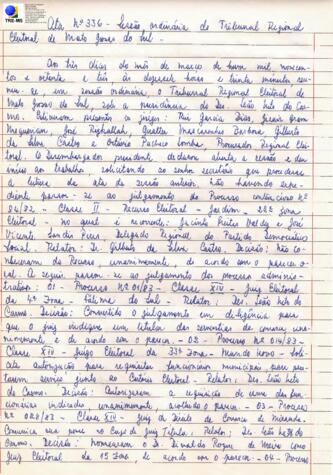 TRE-MS
Ata Nº 336 - Sessão ordinária do Tribunal Regional
Eleitoral de Mato Grosso do Sul.
Aos três dias do mês de março de hum mil novecen-
tos e oitenta e três às dezessete horas e trinta minutos reu-
niu-se em sessão ordinária, o Tribunal Regional Eleitoral de
Mato Grosso do Sul, sob a presidência do Des. Leão Neto do Car-
mo. Estiveram presentes os juízes: Rui Garcia Dias, Jesus
José Rizkallah, Gilberto
da Silva Castro e Octávio Pacheco Lomba, Procurador Regional Elei-
toral. O Desembargador presidente declarou aberta a sessão e deu
início ao trabalho, solicitando ao senhor secretário que procedesse
a leitura da ata da sessão anterior. Não havendo expe-
diente passou-se ao julgamento do Processo contencioso nº
82 - Classe II - Recurso Eleitoral - Jardim - 22ª Zona
Eleitoral - no qual é recorrente: Jacinto
Vicente Delegado Regional do Partido Democrático
Social. Relator: Dr. Gilberto da Silva Castro. Decisão: Não co-
nheceram do Recurso unanimemente, de acordo com o parecer o-
ral. A seguir passou-se ao julgamento dos processos adminis-
trativos: 01 - Processo Nº 01/83 - Classe XIV - Juiz Eleitoral
da 4ª Zona - Fátima do Sul - Relator: Des. Leão Neto do
Carmo. Decisão: Converteram o julgamento em diligência para
que o Juiz indique um titular das serventias da comarca, una-
nimemente e de acordo com o parecer. - 02 - Processo nº 014/83 -
Classe XIV - Juízo Eleitoral da 33ª Zona - Mundo Novo - Soli-
cita autorização para requisitar funcionários municipais para pres-
tarem serviço junto ao Cartório Eleitoral - Relator: Des. Leão Neto
do Carmo. Decisão: Autorizaram a requisição de um dos fun-
cionários indicados unanimemente acolhido o parecer. - 03 - Processo
Nº 020/83 - Classe XIV - Juiz de Direito da Comarca de Miranda.
Comunica sua posse no cargo de Juiz Titular. Relator: Des. Leão Neto do
Carmo. Decisão: Nomearam o Dr. Roque de
Juiz Eleitoral da 15ª Zona de acordo com o pa-